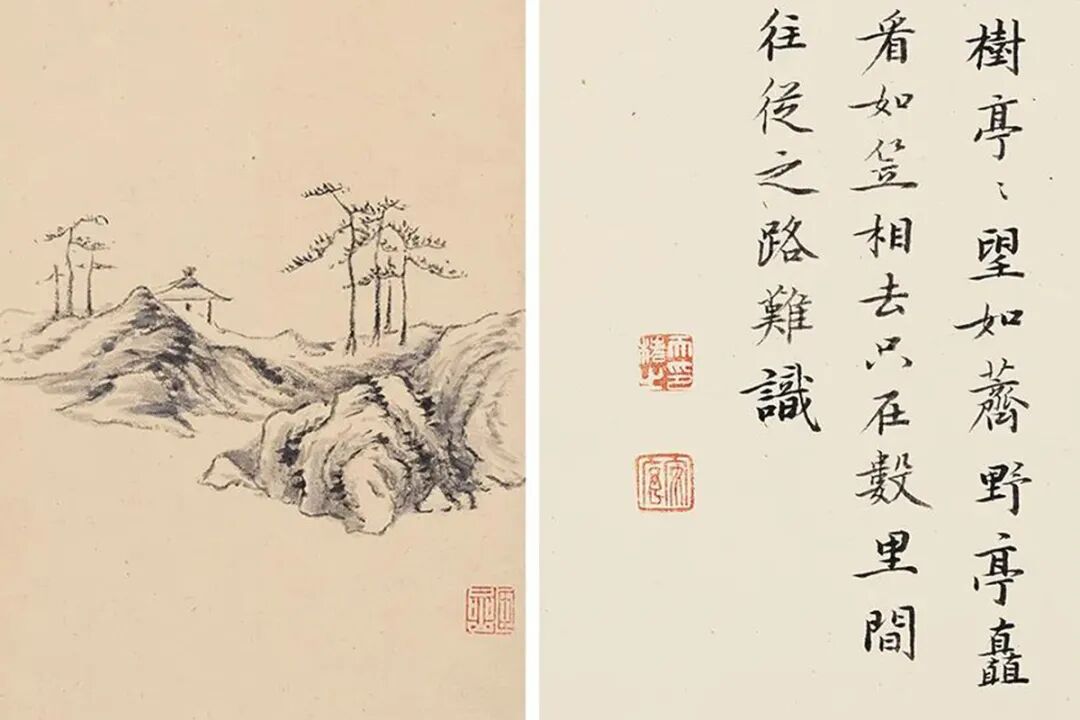 樹亭〻望如薺野亭矗
看如笠相去只在數里間
往從之路難識